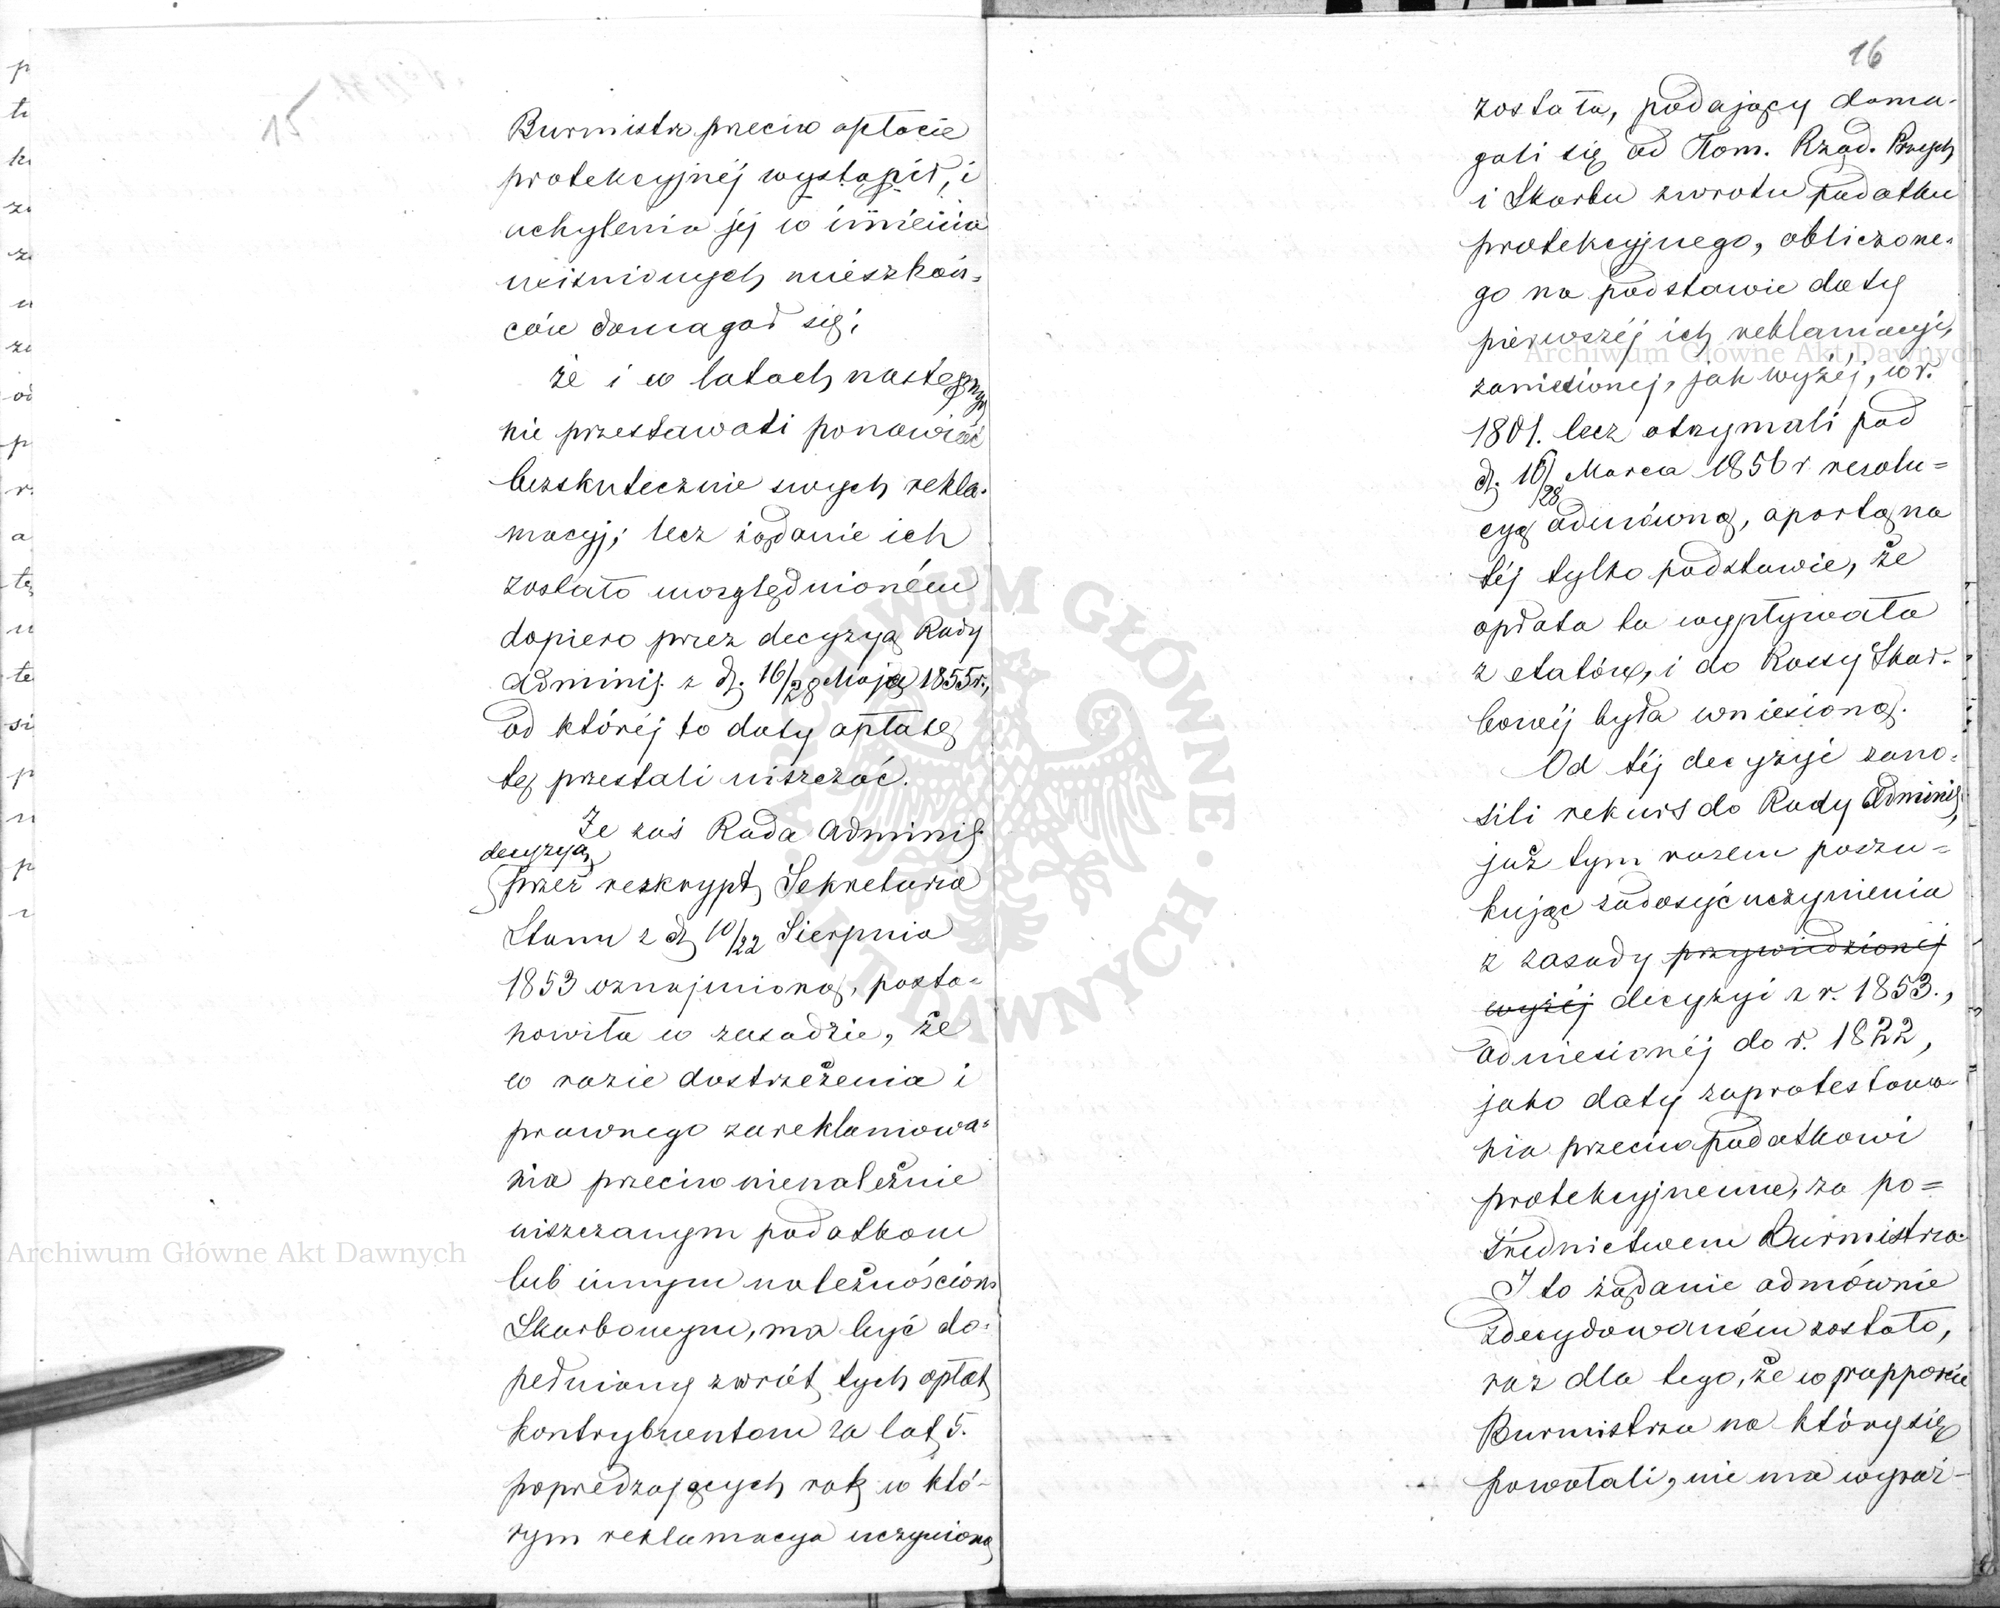 15
Burmistrz przeciw opłacie
protekcyjnéj wystąpił, i
uchylenia jej w imieniu
uciśnionych mieszkań-
ców domagał się;
że i w latach następnych
nie przestawali ponawiać
bezskutecznie swych rekla-
macyj; lecz żądanie ich
zostało uwzględnioném
dopiero przez decyzyą Rady
Adminis. z d. 16/28 Maja 1855 r.,
od któréj to daty opłatę
tę przestali uiszczać.
Że zaś Rada Adminis.
decyzyą
przez reskrypt Sekretarza
Stanu z d. 10/22 Sierpnia
1853 oznajmioną, posta-
nowiła w zasadzie, że
w razie dostrzeżenia i
prawnego zareklamowa-
nia przeciw nienależnie
uiszczanym podatkom
lub innym należnościom
Skarbowym, ma być do-
pełniony zwrót tych opłat
kontrybuentom za lat 5.
poprzedzających rok w któ-
rym reklamacya uczynioną
16
została, podający doma-
gali się od Kom. Rząd. Przych
i Skarbu zwrotu podatku
protekcyjnego, obliczone-
go na podstawie daty
pierwszéj ich reklamacyi,
zaniesionej, jak wyżéj, w r.
1801. lecz otrzymali pod
d. 16/28 Marca 1856 r rezolu-
cyą odmówną, opartą na
téj tylko podstawie, że
opłata ta wypływała
z etatów, i do Kassy Skar-
bowéj była wniesioną.
Od téj decyzyi zano-
sili rekurs do Rady Adminis,
już tym razem poszu-
kując zadosyć uczynienia
z zasady przywiedzionéj
wyżéj decyzyi z r. 1853.,
odniesionéj do r. 1822,
jako daty zaprotestowa-
nia przeciw podatkowi
protekcyjnemu, za po-
średnictwem Burmistrza.
I to żądanie odmównie
zdecydowaném zostało,
raz dla tego, że w rapporcie
Burmistrza na który się
powołali, nie ma wyraź-
Archiwum Główne Akt Dawnych
Archiwum Główne Akt Dawnych
ARCHIWUM GŁÓWNE AKT DAWNYCH